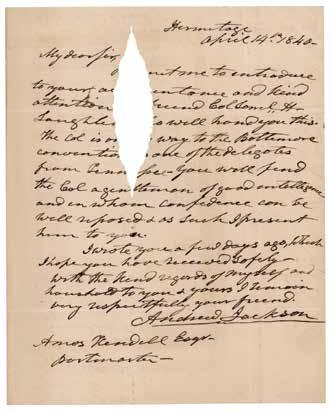 Hermitage
April 14th 1840-
My dear sir
me to introduce
to your and kind
attention friend Col Saml. H.
Laughlin who will hand you this.
the Col is on way to the Baltimore
convention one of the delegates
from Tennessee - you will find
the Col a gentleman of good intelligence
and in whom confidence can be
well reposed & as such I present
him to you.
I wrote you a few days ago, which
I hope you have received safely-
with the kind regards of myself and
household to you & yours I remain
very respectfully your friend
Andrew Jackson
Amos Kendell Esqr-
postmaster-